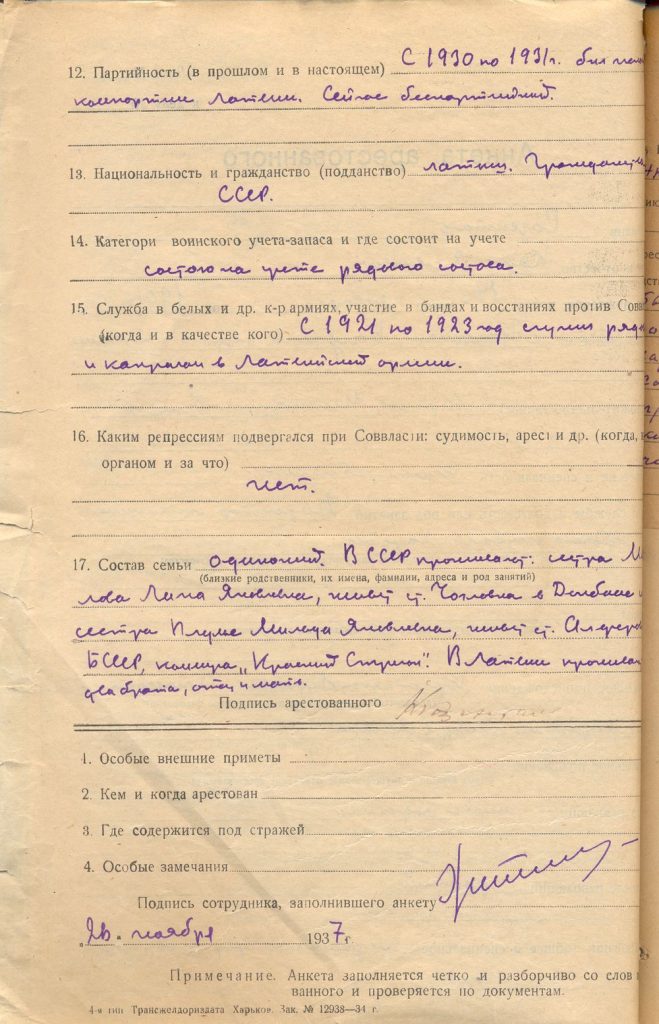 12. Партийность (в прошлом и в настоящем) С 1930 по 1931 г. был
компартии Латвии. Сейчас беспартийный.
13. Национальность и гражданство (подданство) латыш. Граждан
СССР.
14. Категори воинского учета-запаса и где состоит на учете
состою на учете рядового состава.
15. Служба в белых и др. к-р армиях, участие в бандах и восстаниях против Совв
(когда и в качестве кого) С 1921 по 1923 год служил ряд
и капралом в Латвийской армии.
16. Каким репрессиям подвергался при Соввласти: судимость, арест и др. (когда,
органом и за что)
нет.
17. Состав семьи одинокий. В СССР проживают: сестра
(близкие родственники, их имена, фамилии, адреса и род занятий)
лова Лина Яковлевна, живет ст. в Донбасе
сестра Мильда Яковлевна, живет ст.
БССР, коммуна „Красный Стрелок". В Латвии прожива
два брата, отец и мать.
Подпись арестованного
1. Особые внешние приметы
2. Кем и когда арестован
3. Где содержится под стражей
4. Особые замечания
Подпись сотрудника, заполнившего анкету
„26" ноября 1937 г.
Примечание. Анкета заполняется четко и разборчиво со слов
ванного и проверяется по документам.
4-я тип Трансжелдориздата Харьков. Зак. № 12938—34 г.